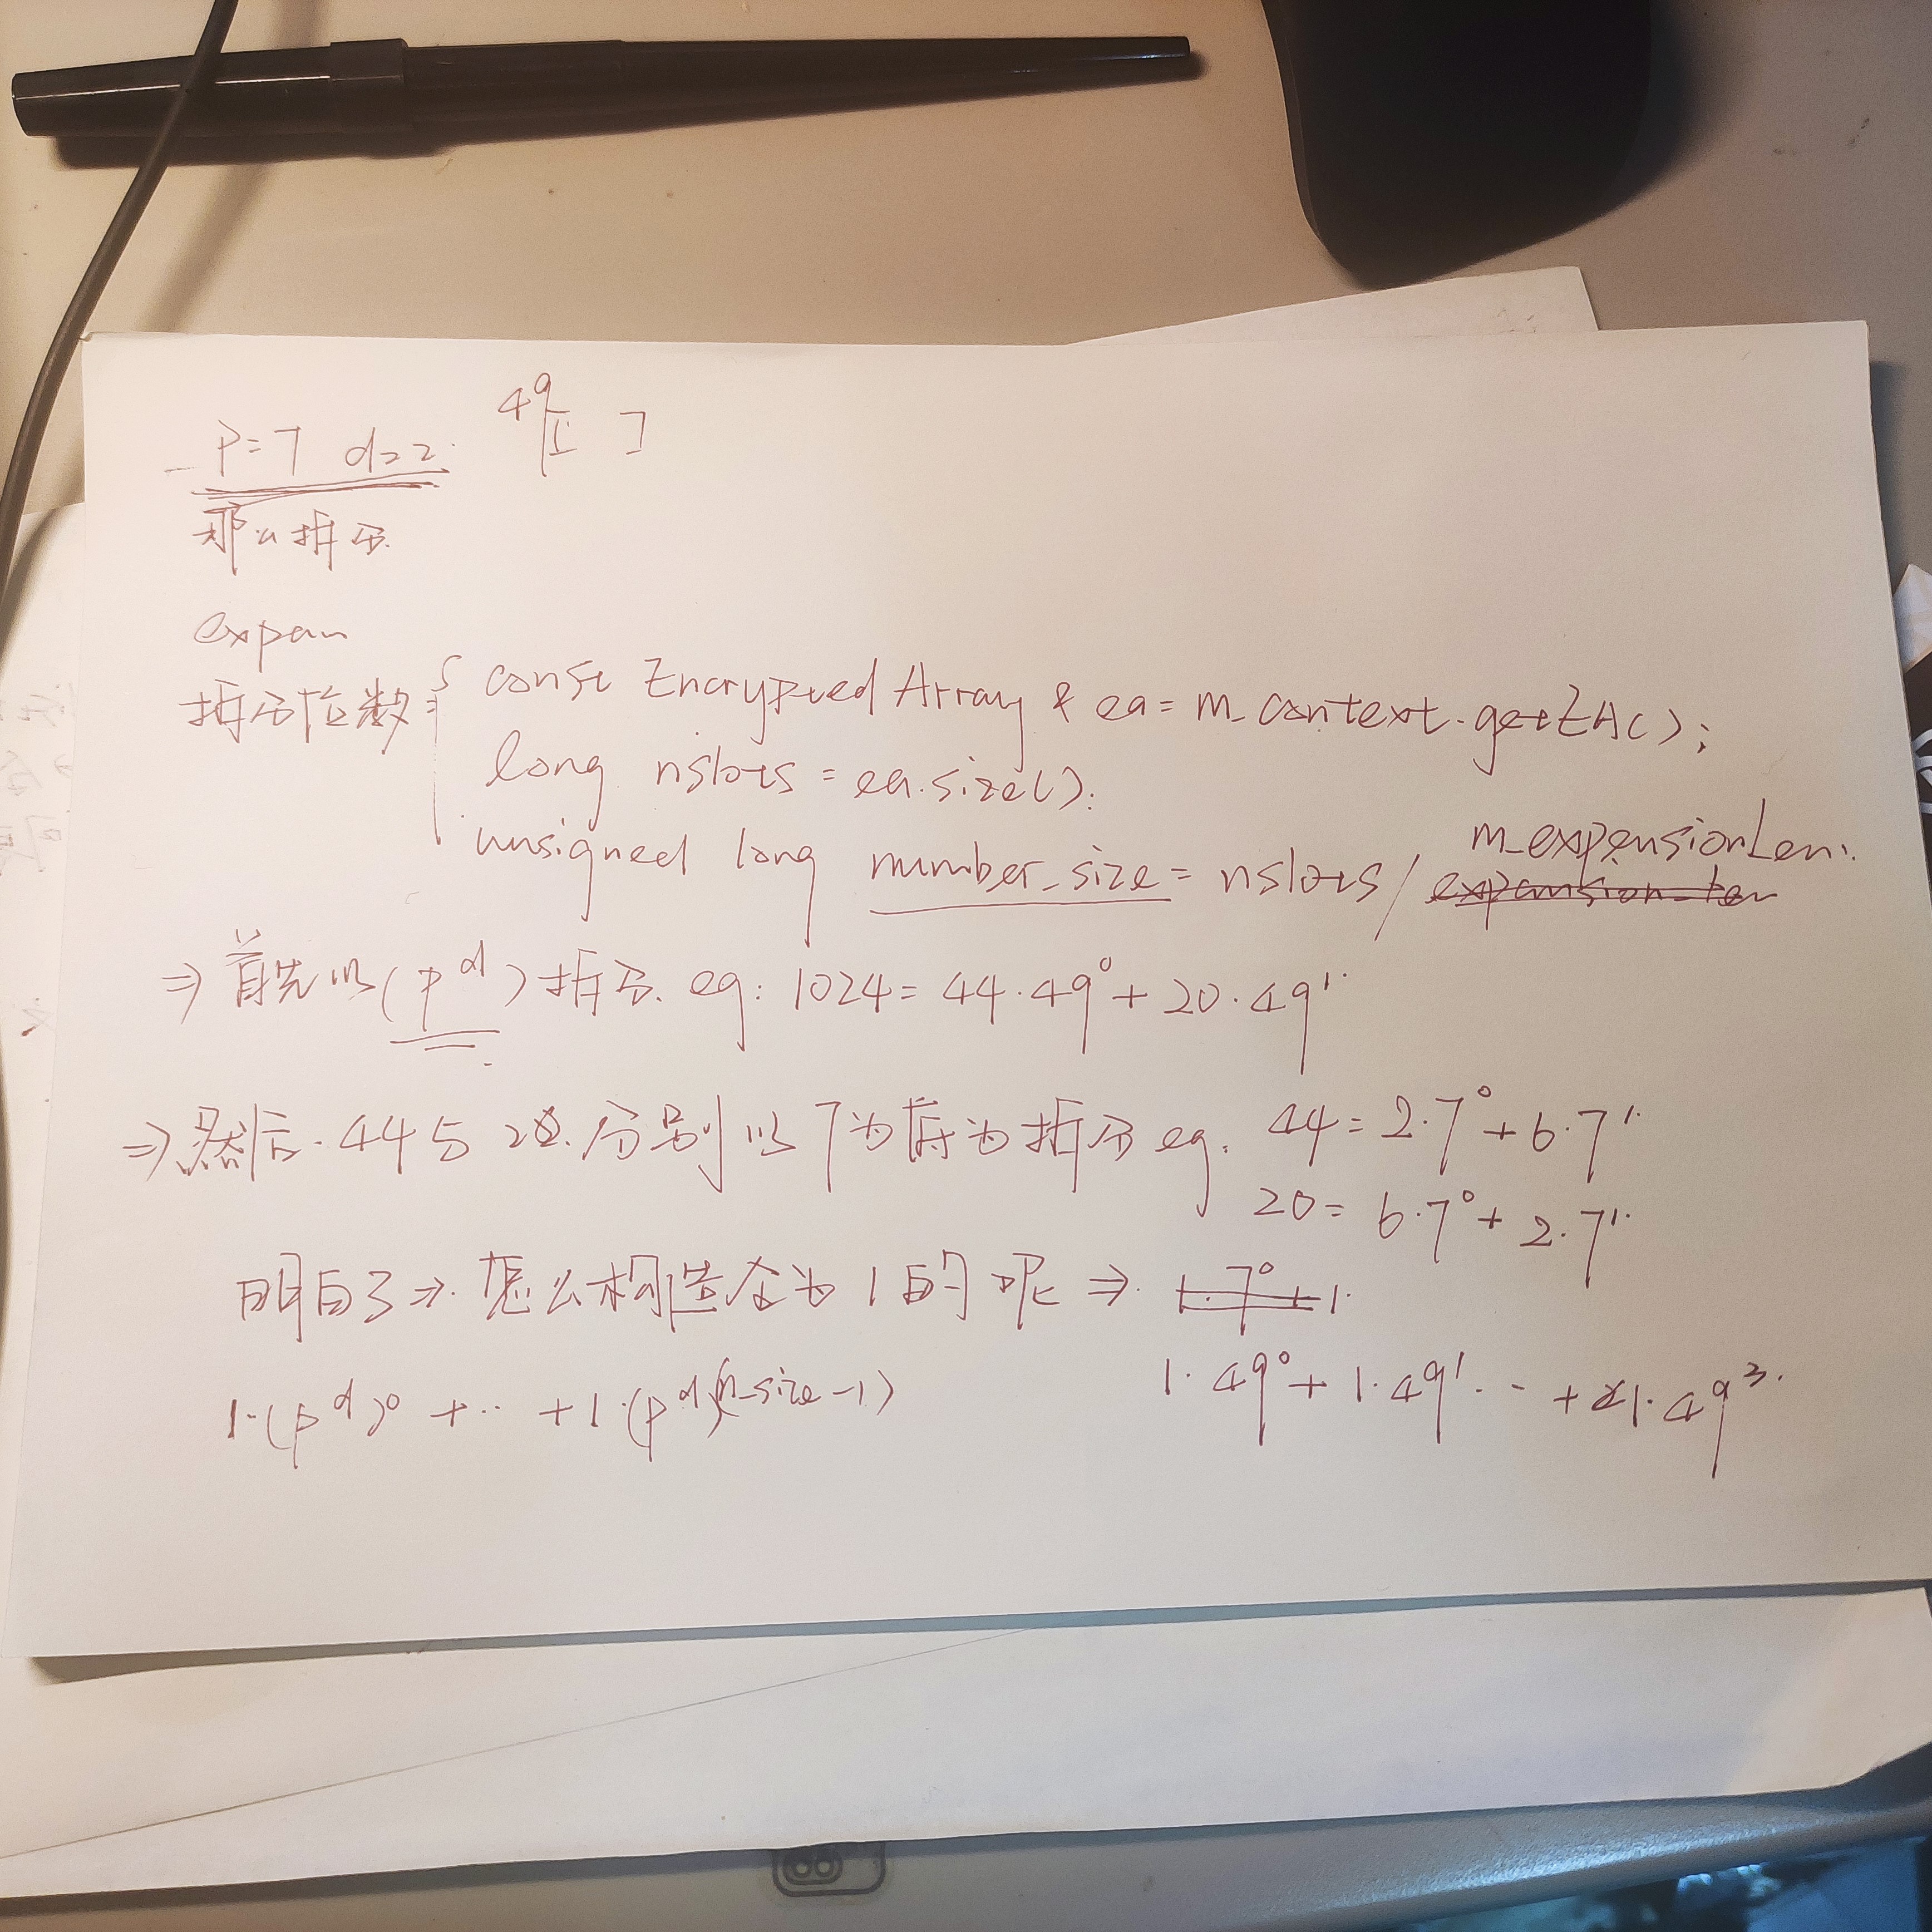 P=7 d=2. 49 [ ]
那么拆分.
expan
拆分位数 = { const Encrypted Array & ea = m_context.getEA();
long nslots = ea.size();
unsigned long number_size = nslots / m_expensionLen;
⇒ 首先以(p^d)拆分. eg: 1024 = 44·49^0 + 20·49^1.
⇒ 然后. 44与20. 分别以7为底为拆分 eg. 44 = 2·7^0 + 6·7^1.
20 = 6·7^0 + 2·7^1.
明白了 ⇒ 怎么构造全为1的呢 ⇒ 1·7^0+1.
1·(p^d)^0 + ·· + 1·(p^d)^(n_size-1) 1·49^0 + 1·49^1 ·- + 1·49^3.